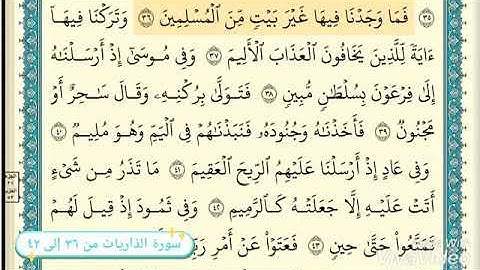 ٣٥ فَمَا وَجَدْنَا فِيهَا غَيْرَ بَيْتٍ مِّنَ ٱلْمُسْلِمِينَ ٣٦ وَتَرَكْنَا فِيهَآ
ءَايَةً لِّلَّذِينَ يَخَافُونَ ٱلْعَذَابَ ٱلْأَلِيمَ ٣٧ وَفِى مُوسَىٰٓ إِذْ أَرْسَلْنَٰهُ
إِلَىٰ فِرْعَوْنَ بِسُلْطَٰنٍ مُّبِينٍ ٣٨ فَتَوَلَّىٰ بِرُكْنِهِۦ وَقَالَ سَٰحِرٌ أَوْ
مَجْنُونٌ ٣٩ فَأَخَذْنَٰهُ وَجُنُودَهُۥ فَنَبَذْنَٰهُمْ فِى ٱلْيَمِّ وَهُوَ مُلِيمٌ ٤٠
وَفِى عَادٍ إِذْ أَرْسَلْنَا عَلَيْهِمُ ٱلرِّيحَ ٱلْعَقِيمَ ٤١ مَا تَذَرُ مِن شَىْءٍ
أَتَتْ عَلَيْهِ إِلَّا جَعَلَتْهُ كَٱلرَّمِيمِ ٤٢ وَفِى ثَمُودَ إِذْ قِيلَ لَهُمْ
تَمَتَّعُوا۟ حَتَّىٰ حِينٍ ٤٣ فَعَتَوْا۟ عَنْ أَمْرِ
سورة الذاريات من ٣٦ إلى ٤٢
VivaVideo